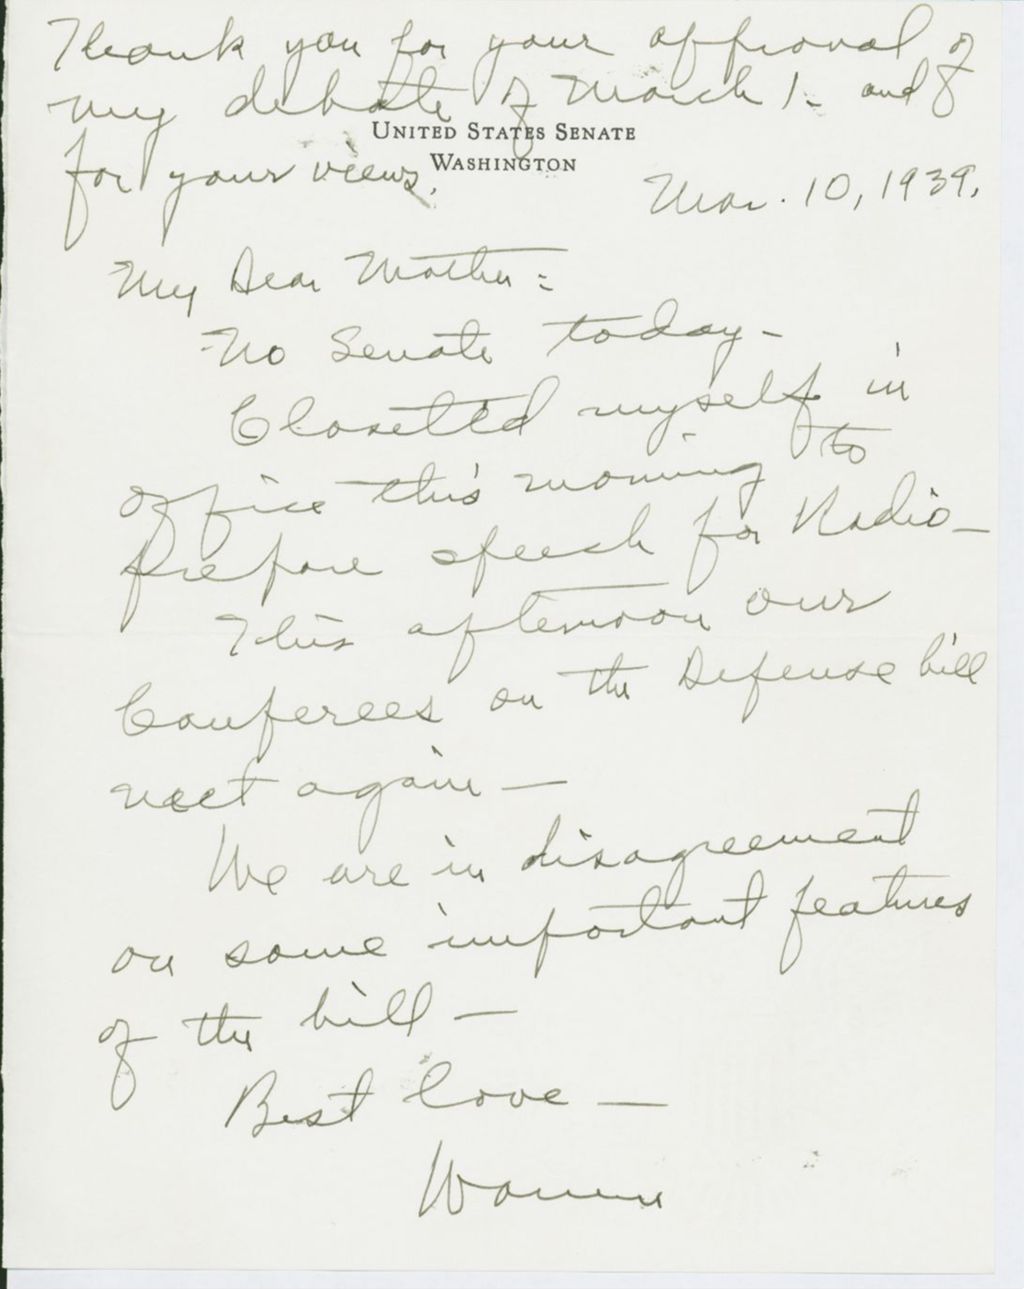 Thank you for your approval of
my debate of March 1 - and
UNITED STATES SENATE
WASHINGTON
for your views.
Mar. 10, 1939.
My Dear Mother:
No Senate today -
Closetted myself in
office this morning to
prepare speech for Radio -
This afternoon our
Conferees on the Defense bill
meet again -
We are in disagreement
on some important features
of the bill -
Best love -
Warren